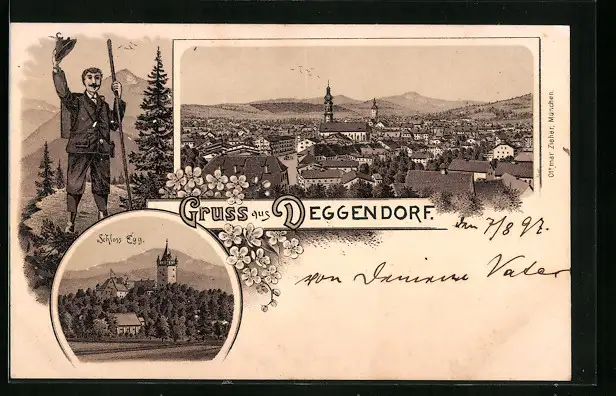 Ottmar Zieher, München.
Gruss aus Deggendorf.
den 7/8 97.
Schloss Egg.
von Deinem Vater